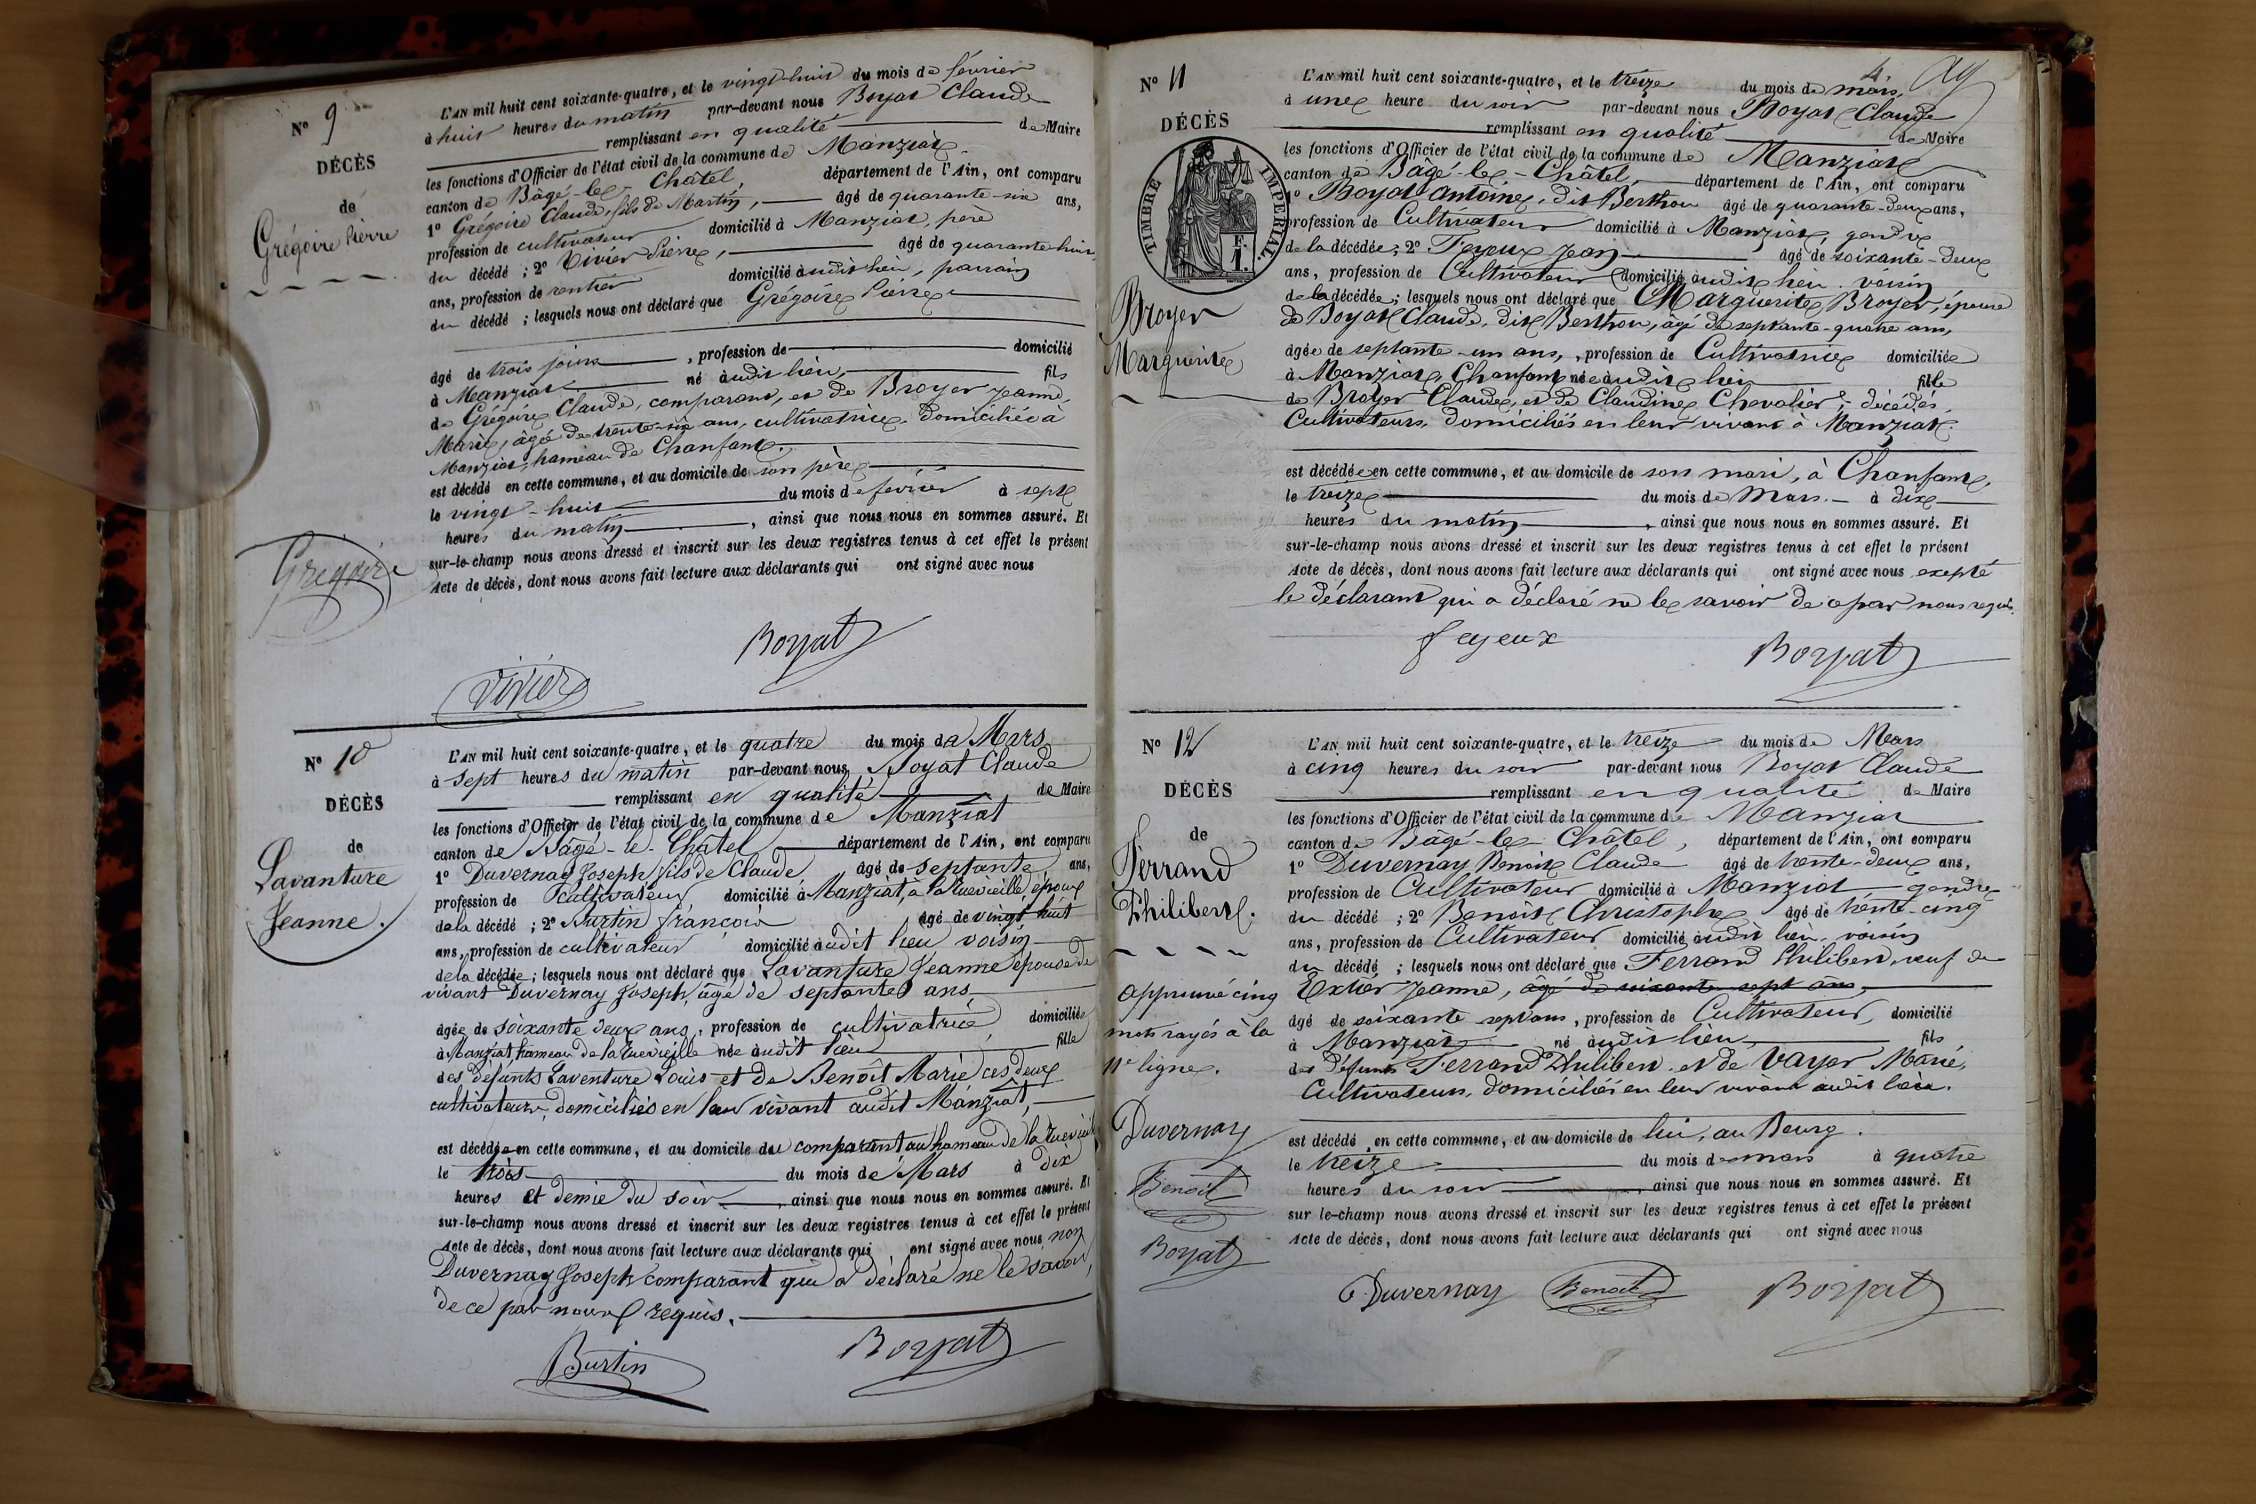 N° 9
DÉCÈS
de
Grégoire Pierre
L'AN mil huit cent soixante-quatre, et le vingt-huit du mois de février
à huit heures du matin par-devant nous Boyat Claude
remplissant en qualité de Maire
les fonctions d'Officier de l'état civil de la commune de Manziat
canton de Bâgé-le-Châtel, département de l'Ain, ont comparu
1° Grégoire Claude, fils de Martin, âgé de quarante-six ans,
profession de cultivateur domicilié à Manziat, père
du décédé ; 2° Vivier Pierre, âgé de quarante huit
ans, profession de rentier domicilié audit lieu, parrain
du décédé ; lesquels nous ont déclaré que Grégoire Pierre
âgé de trois jours, profession de domicilié
à Manziat né audit lieu, fils
de Grégoire Claude, comparant, et de Broyer Jeanne,
Marie, âgée de trente-six ans, cultivatrice, domiciliés à
Manziat, hameau de Chanfant.
est décédé en cette commune, et au domicile de son père
le vingt-huit du mois de février à sept
heures du matin, ainsi que nous nous en sommes assuré. Et
sur-le-champ nous avons dressé et inscrit sur les deux registres tenus à cet effet le présent
Acte de décès, dont nous avons fait lecture aux déclarants qui ont signé avec nous
Grégoire
Boyat
Vivier
N° 10
DÉCÈS
de
Lavanture
Jeanne.
L'AN mil huit cent soixante-quatre, et le quatre du mois de Mars
à sept heures du matin par-devant nous Boyat Claude
remplissant en qualité de Maire
les fonctions d'Officier de l'état civil de la commune de Manziat
canton de Bâgé-le-Châtel département de l'Ain, ont comparu
1° Duvernay Joseph fils de Claude âgé de septante ans,
profession de cultivateur domicilié à Manziat, à la époux
de la décédé ; 2° Burtin françois âgé de vingt huit
ans, profession de cultivateur domicilié audit lieu voisin
de la décédée ; lesquels nous ont déclaré que Lavanture Jeanne épouse de
vivant Duvernay Joseph, âgé de septante ans
âgée de soixante deux ans, profession de cultivatrice domiciliée
à Manziat hameau de la née audit lieu fille
des défunts Laventure Louis et de Benoît Marie ces deux
cultivateurs, domiciliés en leur vivant audit Manziat,
est décédée en cette commune, et au domicile du comparant au hameau de la
le trois du mois de Mars à dix
heures et demie du soir, ainsi que nous nous en sommes assuré. Et
sur-le-champ nous avons dressé et inscrit sur les deux registres tenus à cet effet le présent
Acte de décès, dont nous avons fait lecture aux déclarants qui ont signé avec nous non
Duvernay Joseph comparant qui a déclaré ne le savoir,
de ce par nous requis.
Burtin
Boyat
4.
N° 11
DÉCÈS
TIMBRE IMPÉRIAL
Broyer
Marguerite
L'AN mil huit cent soixante-quatre, et le treize du mois de mars,
à une heure du soir par-devant nous Boyat Claude
remplissant en qualité de Maire
les fonctions d'Officier de l'état civil de la commune de Manziat
canton de Bâgé-le-Châtel, département de l'Ain, ont comparu
1° Boyat Antoine, dit Berthou âgé de quarante-deux ans,
profession de Cultivateur domicilié à Manziat, gendre
de la décédée ; 2° Feyeux Jean âgé de soixante-deux
ans, profession de Cultivateur domicilié audit lieu, voisin
de la décédée ; lesquels nous ont déclaré que Marguerite Broyer, épouse
de Boyat Claude, dit Berthou, âgé de septante-quatre ans,
âgée de septante-un ans, profession de Cultivatrice domiciliée
à Manziat, Chanfant née audit lieu fille
de Broyer Claude, et de Claudine Chevalier, décédés,
Cultivateurs, domiciliés en leur vivant à Manziat.
est décédée en cette commune, et au domicile de son mari, à Chanfant,
le treize du mois de Mars. à dix
heures du matin, ainsi que nous nous en sommes assuré. Et
sur-le-champ nous avons dressé et inscrit sur les deux registres tenus à cet effet le présent
Acte de décès, dont nous avons fait lecture aux déclarants qui ont signé avec nous excepté
le déclarant qui a déclaré ne le savoir de ce par nous requis.
feyeux
Boyat
N° 12
DÉCÈS
de
Ferrand
Philibert.
L'AN mil huit cent soixante-quatre, et le treize du mois de Mars
à cinq heures du soir par-devant nous Boyat Claude
remplissant en qualité de Maire
les fonctions d'Officier de l'état civil de la commune de Manziat
canton de Bâgé-le-Châtel, département de l'Ain, ont comparu
1° Duvernay Benoit Claude âgé de trente-deux ans,
profession de Cultivateur domicilié à Manziat, gendre
du décédé ; 2° Benoit Christophe âgé de trente-cinq
ans, profession de Cultivateur domicilié audit lieu, voisin
du décédé ; lesquels nous ont déclaré que Ferrand Philibert, veuf de
Extier Jeanne, âgé de soixante sept ans,
âgé de soixante sept ans, profession de Cultivateur, domicilié
à Manziat né audit lieu, fils
des défunts Ferrand Philibert et de Vayer Marie,
Cultivateurs, domiciliés en leur vivant audit lieu.
est décédé en cette commune, et au domicile de lui, au Bourg.
le treize du mois de mars à quatre
heures du soir, ainsi que nous nous en sommes assuré. Et
sur le-champ nous avons dressé et inscrit sur les deux registres tenus à cet effet le présent
Acte de décès, dont nous avons fait lecture aux déclarants qui ont signé avec nous
Approuvé cinq
mots rayés à la
11e ligne.
Duvernay
Benoit
Boyat
C. Duvernay
Benoit
Boyat